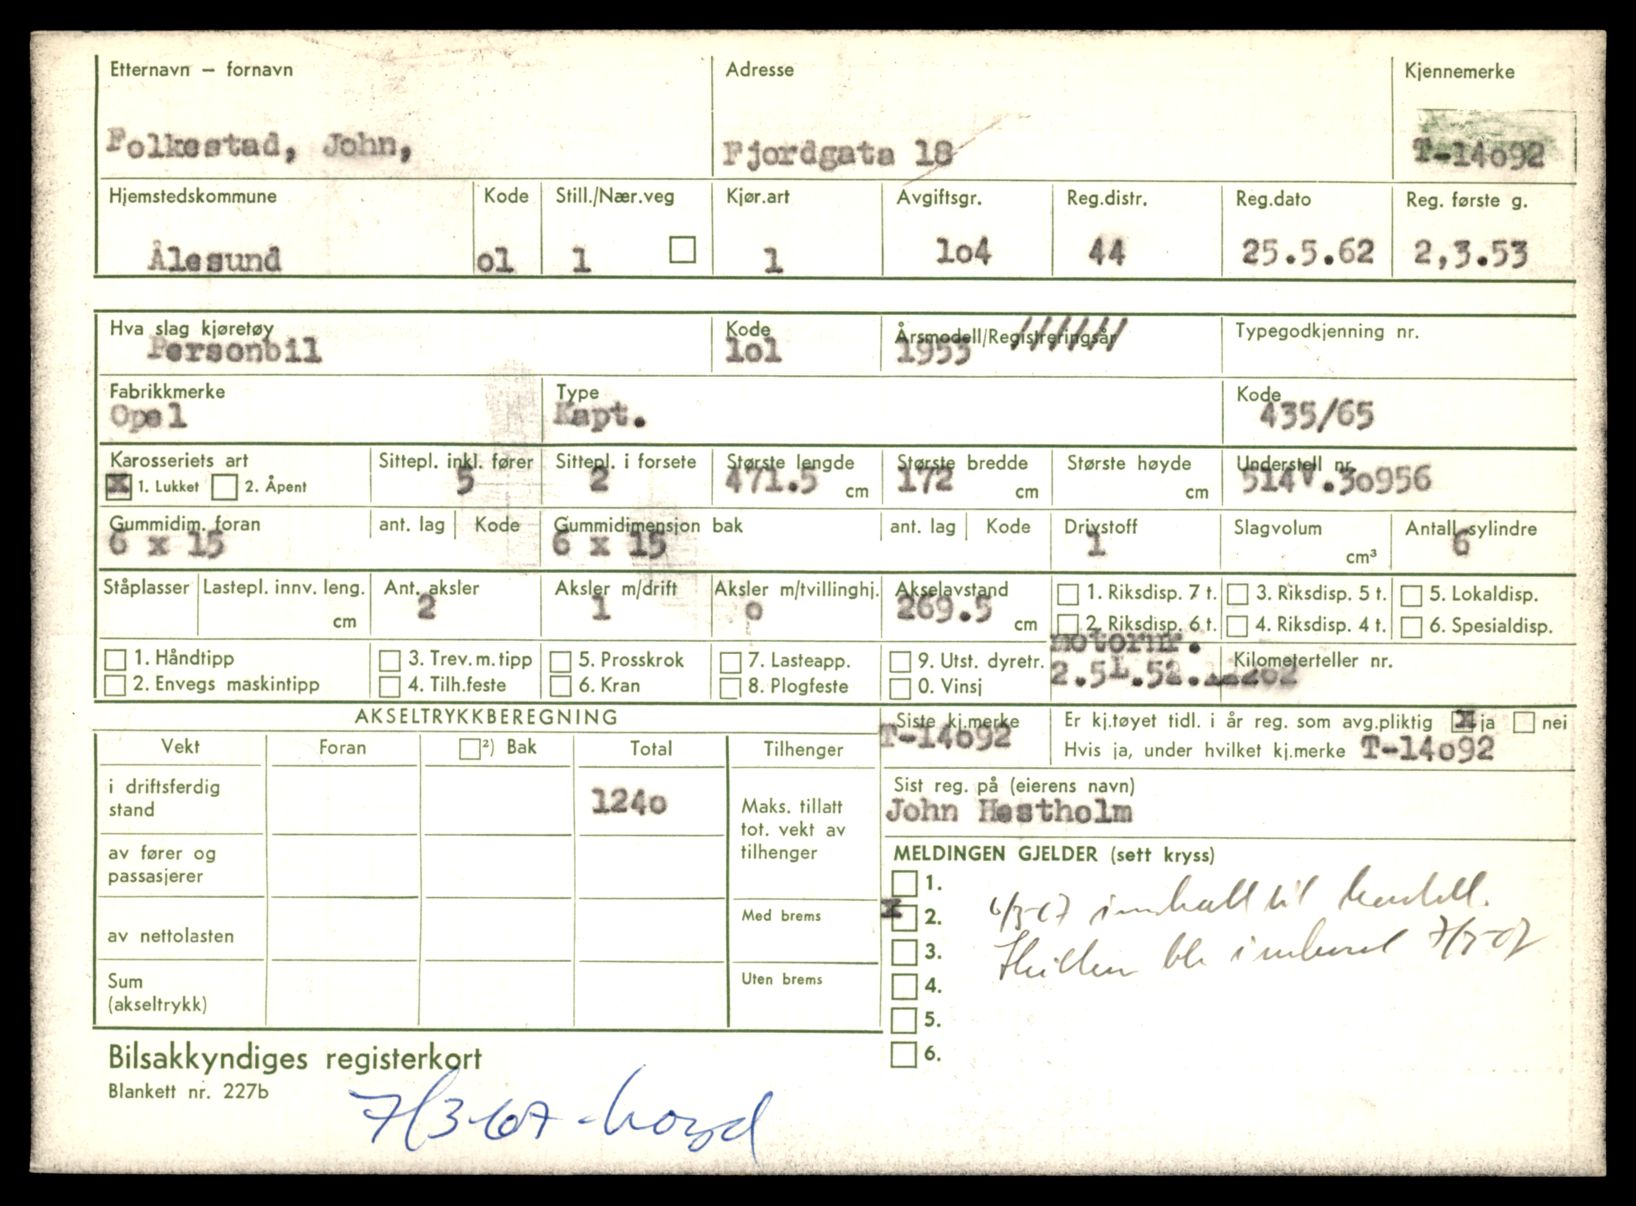 Etternavn – fornavn Adresse Kjennemerke
Folkestad, John, Fjordgata 18 T-14o92
Hjemstedskommune Kode Still./Nær.veg Kjør.art Avgiftsgr. Reg.distr. Reg.dato Reg. første g.
Ålesund ol 1 1 lo4 44 25.5.62 2,3.53
Hva slag kjøretøy Kode Årsmodell/Registreringsår Typegodkjenning nr.
Personbil lol 1953
Fabrikkmerke Type Kode
Opel Kapt. 435/65
Karosseriets art Sittepl. inkl. fører Sittepl. i forsete Største lengde Største bredde Største høyde Understell nr.
x 1. Lukket 2. Åpent 5 2 471.5 cm 172 cm cm 514V.3o956
Gummidim. foran ant. lag Kode Gummidimensjon bak ant. lag Kode Drivstoff Slagvolum Antall sylindre
6 x 15 6 x 15 1 cm³ 6
Ståplasser Lastepl. innv. leng. Ant. aksler Aksler m/drift Aksler m/tvillinghj. Akselavstand 1. Riksdisp. 7 t. 3. Riksdisp. 5 t. 5. Lokaldisp.
cm 2 1 o 269.5 cm 2. Riksdisp. 6 t. 4. Riksdisp. 4 t. 6. Spesialdisp.
motornr.
1. Håndtipp 3. Trev.m.tipp 5. Prosskrok 7. Lasteapp. 9. Utst. dyretr. Kilometerteller nr.
2. Envegs maskintipp 4. Tilh.feste 6. Kran 8. Plogfeste 0. Vinsj 2.5L.52.
AKSELTRYKKBEREGNING Siste kj.merke Er kj.tøyet tidl. i år reg. som avg.pliktig x ja nei
T-14o92 Hvis ja, under hvilket kj.merke T-14o92
Vekt Foran ²) Bak Total Tilhenger
i driftsferdig stand 124o Maks. tillatt tot. vekt av tilhenger
Sist reg. på (eierens navn)
John Hestholm
av fører og passasjerer
MELDINGEN GJELDER (sett kryss)
1.
x 2.
3.
4.
5.
6.
av nettolasten Med brems
Sum (akseltrykk) Uten brems
Bilsakkyndiges registerkort
Blankett nr. 227b
7/3-67